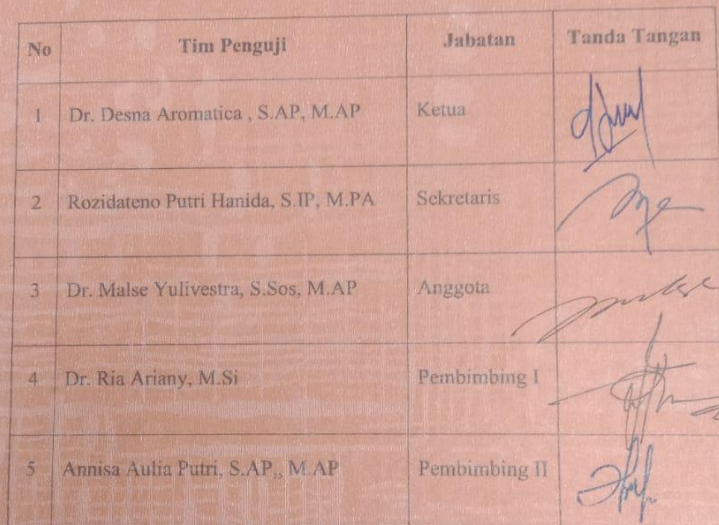 No Tim Penguji Jabatan Tanda Tangan
1 Dr. Desna Aromatica , S.AP, M.AP Ketua
2 Rozidateno Putri Hanida, S.IP, M.PA Sekretaris
3 Dr. Malse Yulivestra, S.Sos, M.AP Anggota
4 Dr. Ria Ariany, M.Si Pembimbing I
5 Annisa Aulia Putri, S.AP,, M.AP Pembimbing II